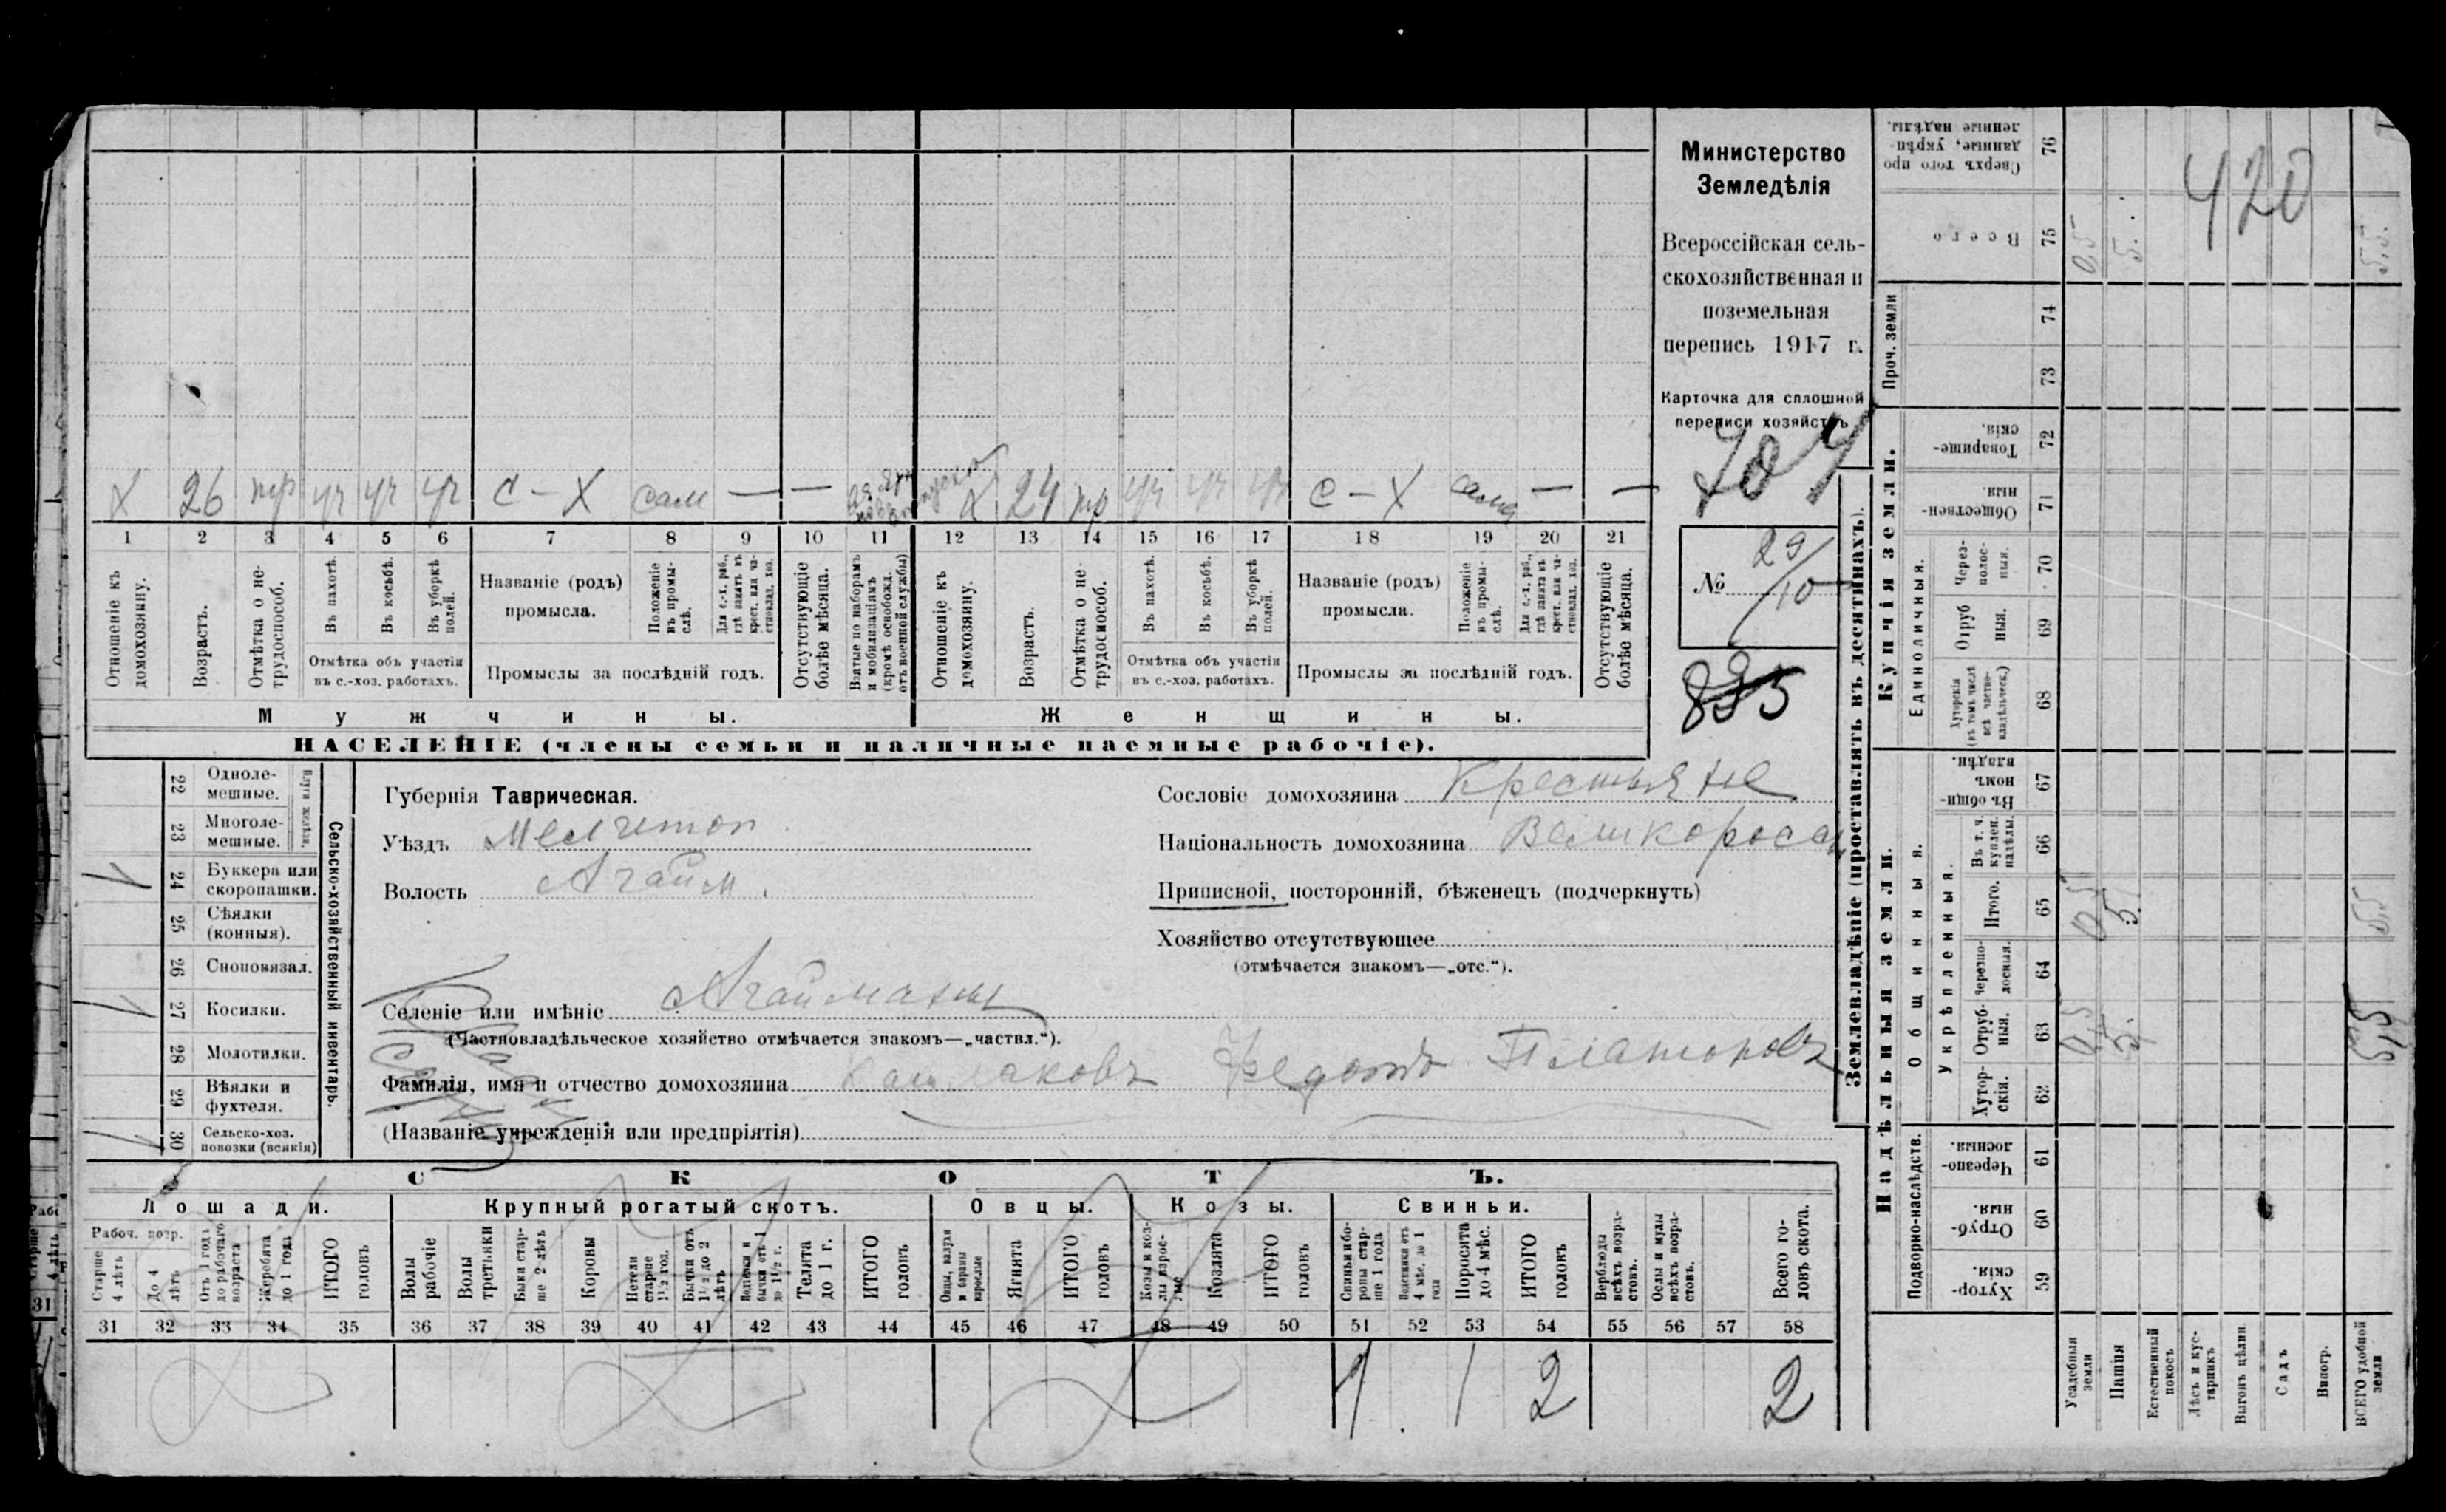 Министерство
Земледѣлія
Всероссійская сель-
скохозяйственная и
поземельная
перепись 1917 г.
Карточка для сплошной
переписи хозяйствъ
709
№ 29/10
835
х 26 тр уч уч уч с-х сам — —
х 24 тр уч уч уч с-х сама — —
1 2 3 4 5 6 7 8 9 10 11 12 13 14 15 16 17 18 19 20 21
Отношеніе къ домохозяину.
Возрастъ.
Отмѣтка о не-трудоспособ.
Въ пахотѣ.
Въ косьбѣ.
Въ уборкѣ полей.
Названіе (родъ) промысла.
Положеніе въ промы-слѣ.
Для с.-х. раб., гдѣ занятъ въ крест. или ча-стновлад. хоз.
Отсутствующіе болѣе мѣсяца.
Взятые по наборамъ и мобилизаціямъ (кромѣ освобожд. отъ военной службы)
Отношеніе къ домохозяину.
Возрастъ.
Отмѣтка о не-трудоспособ.
Въ пахотѣ.
Въ косьбѣ.
Въ уборкѣ полей.
Названіе (родъ) промысла.
Положеніе въ промы-слѣ.
Для с.-х. раб., гдѣ занята въ крест. или ча-стновлад. хоз.
Отсутствующіе болѣе мѣсяца.
Отмѣтка объ участіи въ с.-хоз. работахъ.
Промыслы за послѣдній годъ.
Отмѣтка объ участіи въ с.-хоз. работахъ.
Промыслы за послѣдній годъ.
Мужчины.
Женщины.
НАСЕЛЕНІЕ (члены семьи и наличные наемные рабочіе).
22 Одноле-мешные.
23 Многоле-мешные.
Плуги желѣзн.
24 Буккера или скоропашки. 1
25 Сѣялки (конныя).
26 Сноповязал.
27 Косилки. 1
28 Молотилки.
29 Вѣялки и фухтеля.
30 Сельско-хоз. повозки (всякія) 1
Сельско-хозяйственный инвентарь.
Губернія Таврическая.
Уѣздъ Мелитоп.
Волость Агайм.
Селеніе или имѣніе Агайманы
(Частновладѣльческое хозяйство отмѣчается знакомъ—„частвл.“).
Фамилія, имя и отчество домохозяина Федотъ Платоновъ
(Названіе учрежденія или предпріятія)
Сословіе домохозяина Крестьяне
Національность домохозяина Великороссы
Приписной, посторонній, бѣженецъ (подчеркнуть)
Хозяйство отсутствующее
(отмѣчается знакомъ—„отс.“).
СКОТЪ.
Лошади.
Крупный рогатый скотъ.
Овцы.
Козы.
Свиньи.
Рабоч. возр.
Старше 4 лѣтъ
До 4 лѣтъ
Отъ 1 года до рабочаго возраста
Жеребята до 1 года
ИТОГО головъ
Волы рабочіе
Волы третьяки
Быки стар-ше 2 лѣтъ
Коровы
Нетели старше 1½ год.
Бычки отъ 1½ до 2 лѣтъ
Телята до 1 г.
ИТОГО головъ
Овцы, валухи и бараны взрослые
Ягнята
ИТОГО головъ
Козы и коз-лы взрос-лые
Козлята
ИТОГО головъ
Свиньи и бо-ровы стар-ше 1 года
Подсвинки отъ 4 мѣс. до 1 года
Поросята до 4 мѣс.
ИТОГО головъ
Верблюды всѣхъ возра-стовъ.
Ослы и мулы всѣхъ возра-стовъ.
Всего го-ловъ скота.
31 32 33 34 35 36 37 38 39 40 41 42 43 44 45 46 47 48 49 50 51 52 53 54 55 56 57 58
1 1 2 2
Землевладѣніе (проставлять въ десятинахъ).
Надѣльныя земли.
Купчія земли.
Проч. земли
Подворно-наслѣдств.
Общинныя.
Укрѣпленныя.
Единоличныя.
Хутор-скія. 59
Отруб-ныя. 60
Черезпо-лосныя. 61
Хутор-скія. 62
Отруб-ныя. 63
Черезпо-лосныя. 64
Итого. 65
Въ т. ч. куплен. надѣлы. 66
Въ общи-номъ владѣн. 67
Хуторскія (въ томъ числѣ всѣ частно-владѣльческ.) 68
Отруб ныя. 69
Через-полос-ныя. 70
Обществен-ныя. 71
Товарище-скія. 72
73
74
Всего 75
Сверхъ того про данные, укрѣп-ленные надѣлы. 76
Усадебныя земли 0,5 0,5 0,5
Пашня 5. 5. 5.
Естественный покосъ
Лѣсъ и кус-тарникъ
Выгонъ цѣлин.
Садъ
Виногр.
ВСЕГО удобной земли 5,5 5,5 5,5.
420